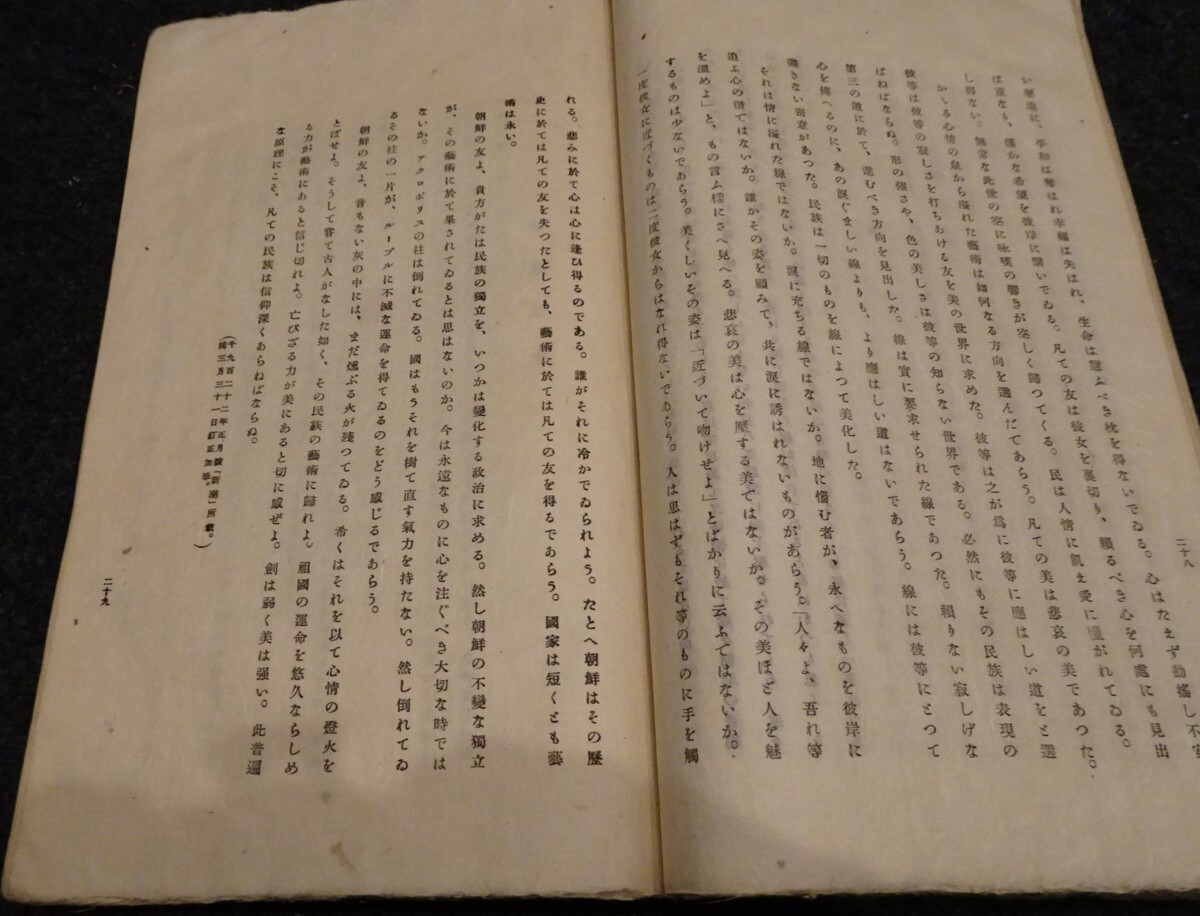 心はたえず動搖し不安
い寒途に、平和は奪はれ幸福は失はれ、生命は憩ふべき枕を得ないでゐる。
ば重なり、僅かな希望を彼岸に繋いでゐる。凡ての友は彼女を裏切り、頼るべき心を何處にも見出
し得ない。無常な此世の空に咏嘆の響きが空しく歸つてくる。民は人情に飢え愛に憧がれてゐる。
かゝる心情の泉から溢れた藝術は如何なる方向を選んだてあらう。凡ての美は悲哀の美であつた。
彼等は彼等の寂しさを打ちあける友を美の世界に求めた。彼等は之が爲に彼等に應はしい道をと選
ばねばならぬ。形の強さや、色の美しさは彼等の知らない世界である。必然にもその民族は表現の
第三の道に於て、進むべき方向を見出した。線は實に要求せられた線であつた。頼りない寂しげな
心を傳へるのに、あの涙ぐましい線よりも、より應はしい道はないであらう。線には彼等にとつて
盡きない密意があつた。民族は一切のものを線によつて美化した。
それは情に溢れた線ではないか。涙に充ちる線ではないか。地に惱む者が、永へなものを彼岸に
追ふ心の徴てはないか。誰かその姿を顧みて、共に涙に誘はれないものがあらう。「人々よ、吾れ等
を溫めよ」と、もの言ふ樣にさへ見へる。悲哀の美は心を壓する美てはないか。その美ほど人を魅
するものは少ないであらう。美くしいその姿は「近づいて吻けせよ」とばかりに云ふてはないか。
一度彼女に近づくものは二度彼女からはなれ得ないであらう。人は思はずもそれ等のものに手を觸
二十八
れる。悲みに於て心は心に逢ひ得るのである。誰がそれに冷かでゐられよう。たとへ朝鮮はその歷
史に於ては凡ての友を失つたとしても、藝術に於ては凡ての友を得るであらう。國家は短くとも藝
術は永い。
朝鮮の友よ、貴方がたは民族の獨立を、いつかは變化する政治に求める。然し朝鮮の不變な獨立
が、その藝術に於て果されてゐるとは思はないのか。今は永遠なものに心を注ぐべき大切な時では
ないか。アクロポリスの柱は倒れてゐる。國はもうそれを樹て直す氣力を持たない。然し倒れてゐ
るその柱の一片が、ルーブルに不滅な運命を得てゐるのをどう感じるであらう。
朝鮮の友よ、音もない灰の中には、まだ燻ぶる火が殘つてゐる。希くはそれを以て心情の燈火を
とぼせよ。そうして嘗て古人がなした如く、その民族の藝術に歸れよ。祖國の運命を悠久ならしめ
る力が藝術にあると信じ切れよ。亡びざる力が美にあると切に感ぜよ。劍は弱く美は强い。此普遍
な原理にこそ、凡ての民族は信仰深くあらねばならぬ。
(千九百二十二年正月號「新潮」所載。
同三月三十一日訂正加筆。)
二十九